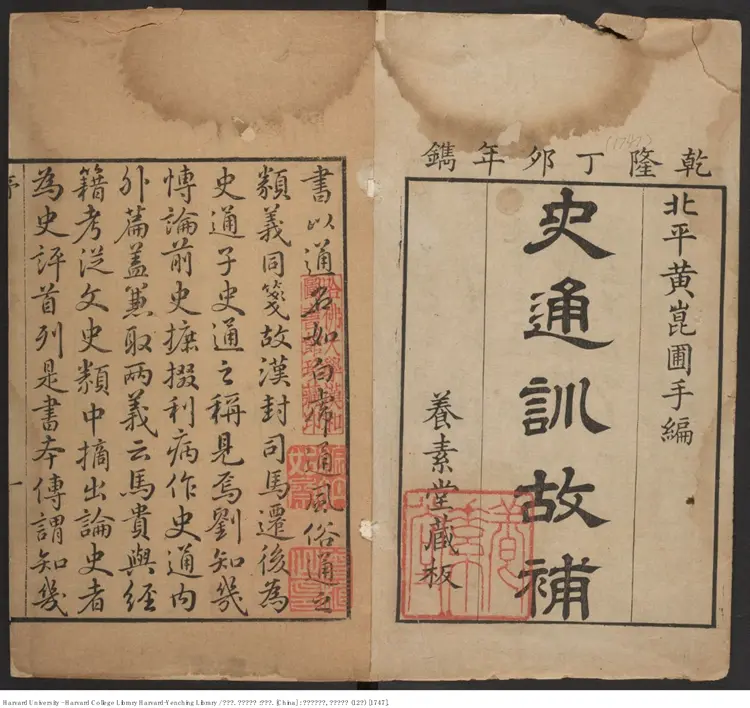 乾隆丁卯年鐫
(1747)
北平黃崑圃手編
史通訓故補
養素堂藏板
書以通名如白虎通風俗通之
類義同箋故漢封司馬遷後為
史通子史通之稱見焉劉知幾
愽論前史摭掇利病作史通內
外篇蓋兼取兩義云馬貴與經
籍考從文史類中摘出論史者
為史評首列是書本傳謂知幾
序
一
哈佛大學漢和
圖書館珍藏印
Harvard University - Harvard College Library Harvard-Yenching Library / ???. ????? : ???. [China] : ??????, ????? (12??) [1747].